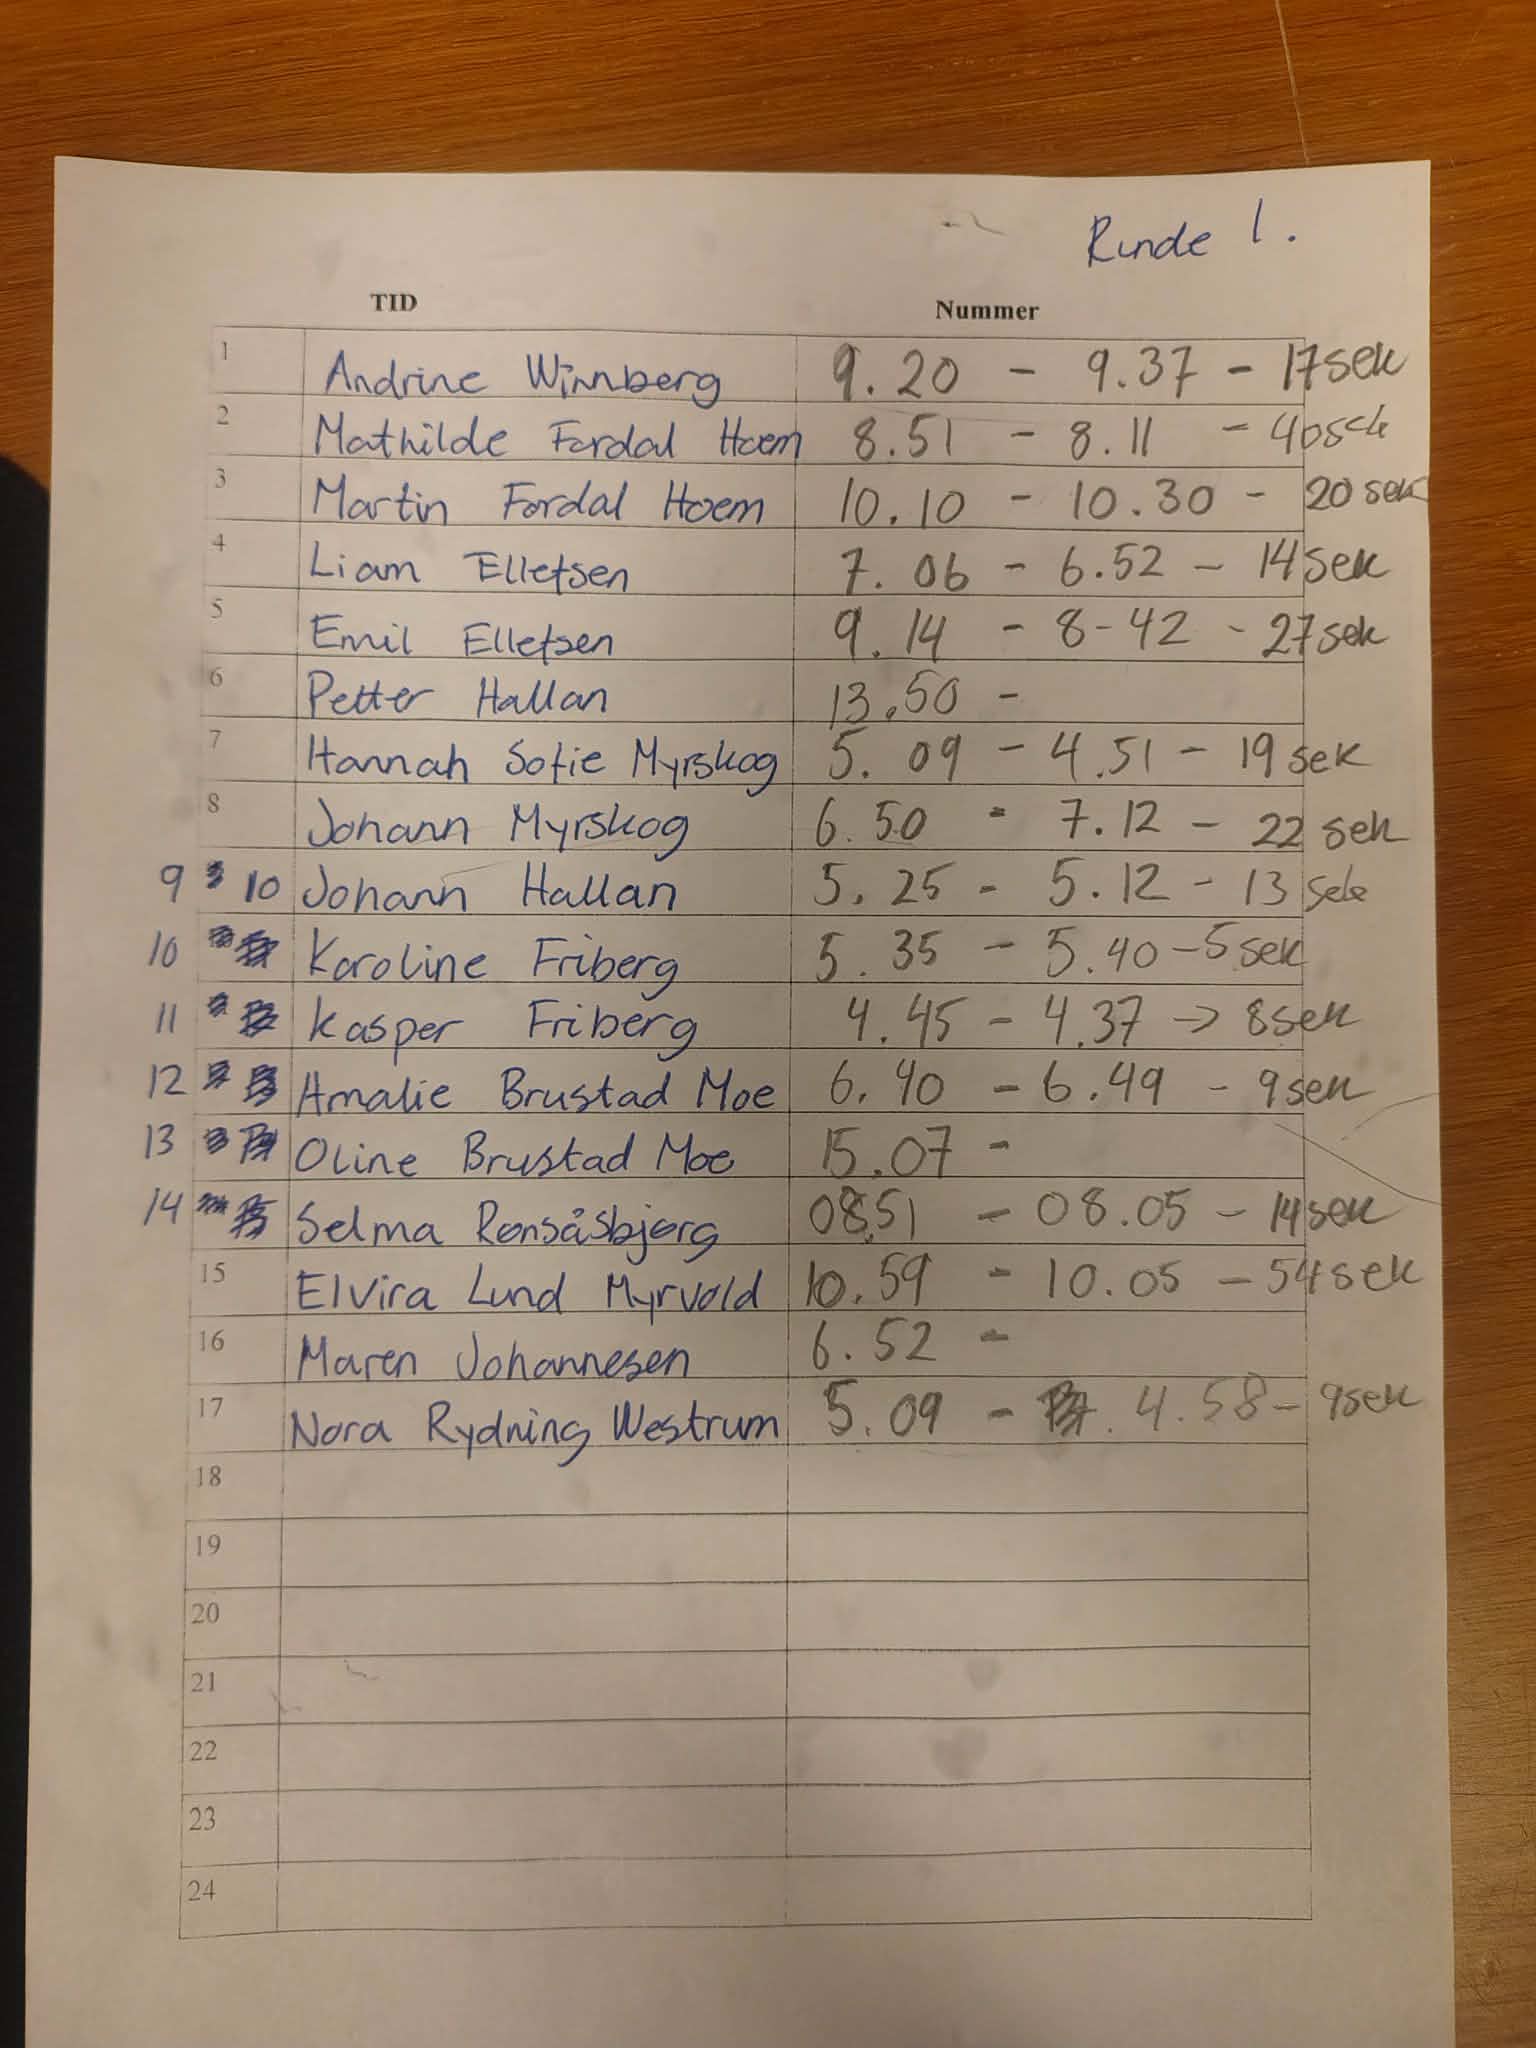 Runde 1.
TID Nummer
1 Andrine Winnberg 9.20 - 9.37 - 17sek
2 Mathilde Fordal Hoem 8.51 - 8.11 - 40sek
3 Martin Fordal Hoem 10.10 - 10.30 - 20 sek
4 Liam Ellefsen 7.06 - 6.52 - 14sek
5 Emil Ellefsen 9.14 - 8-42 - 27sek
6 Petter Hallan 13.50 -
7 Hannah Sofie Myrskog 5.09 - 4.51 - 19 sek
8 Johann Myrskog 6.50 - 7.12 - 22 sek
9 10 Johann Hallan 5.25 - 5.12 - 13 sek
10 Karoline Friberg 5.35 - 5.40 - 5 sek
11 Kasper Friberg 4.45 - 4.37 -> 8sek
12 Amalie Brustad Moe 6.40 - 6.49 - 9sek
13 Oline Brustad Moe 15.07 -
14 Selma Rønsåsbjørg 08.51 - 08.05 - 14sek
15 Elvira Lund Myrvold 10.59 - 10.05 - 54sek
16 Maren Johannesen 6.52 -
17 Nora Rydning Westrum 5.09 - 4.58 - 9sek
18
19
20
21
22
23
24